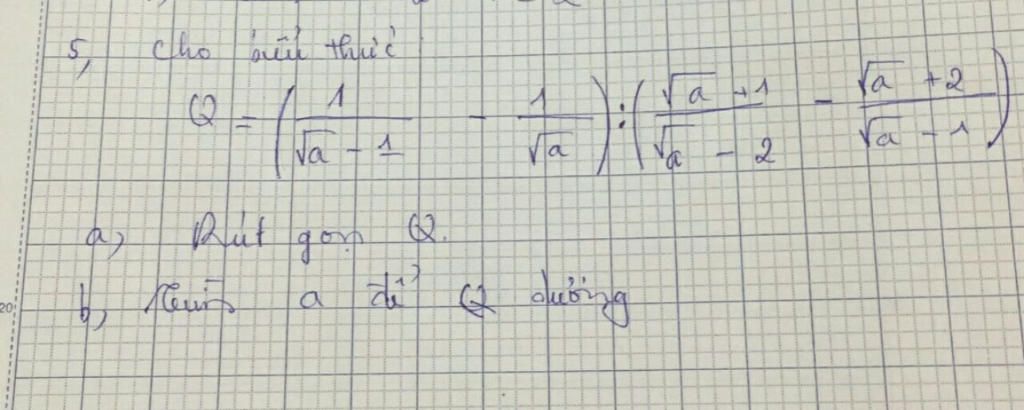 5, Cho biểu thức
Q = ( 1/(√a - 1) - 1/√a ) : ( (√a + 1)/(√a - 2) - (√a + 2)/(√a - 1) )
a, Rút gọn Q.
b, a để Q dương
20